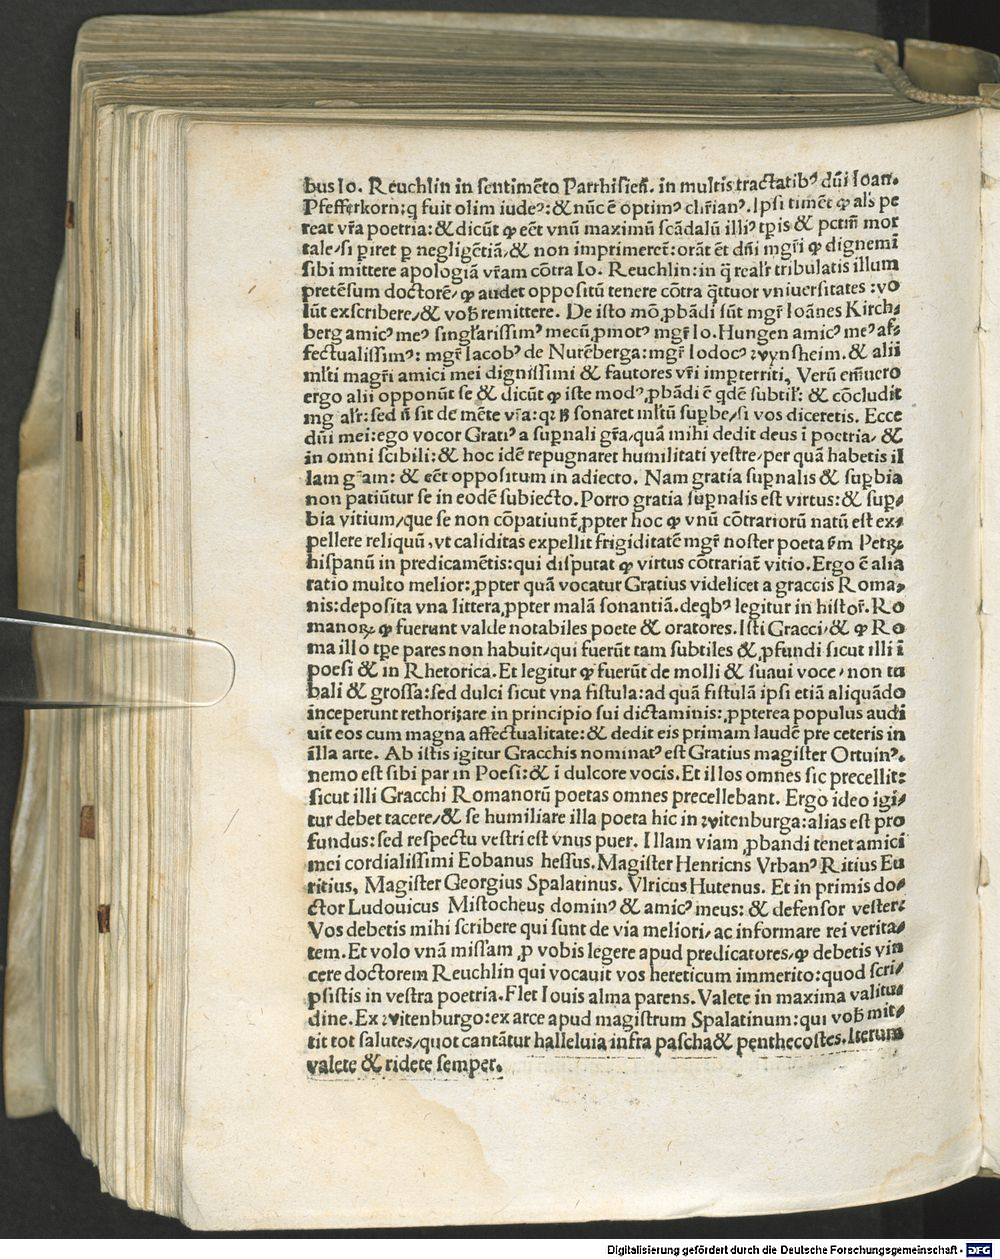 bus Io. Reuchlin in sentimẽto Parrhisieñ. in multis tractatibꝰ dñi Ioan.
Pfefferkorn; q̃ fuit olim iudeꝰ: & nũc ẽ optimꝰ chr̃ianꝰ. Ipsi timẽt ꝙ al's pe
reat vr̃a poetria: & dicũt ꝙ eẽt vnũ maximũ scãdalũ illiꝰ tp̃is & pctm̃ mor
tale/si p̱iret p̱ negligẽtiã/& non imprimeret̃: orãt ẽt dñi mgr̃i ꝙ dignemĩ
sibi mittere apologiã vr̃am cõtra Io. Reuchlin: in q̃ real'r tribulatis illum
pretẽsum doctorẽ/ ꝙ audet oppositũ tenere cõtra q̃ttuor vniuersitates :vo
lũt exscribere/& vob̃ remittere. De isto mõ ꝓbãdi sũt mgr̃ Ioãnes Kirch/
berg amicꝰ meꝰ singl'arissimꝰ mecũ ꝓmotꝰ mgr̃ Io. Hungen amicꝰ meꝰ af/
fectualissimꝰ: mgr̃ Iacobꝰ de Nurẽberga: mgr̃ Iodocꝰ wynsheim. & alii
ml'ti magr̃i amici mei dignissimi & fautores vr̃i imp̱territi, Verũ em̃uero
ergo alii opponũt se & dicũt ꝙ iste modꝰ ꝓbãdi ẽ q̃dẽ subtil': & cõcludit
mg̃ al'r: sed ñ sit de mẽte vr̃a: qꝛ ꝗ sonaret ml'tũ sup̱be/si vos diceretis. Ecce
dñi mei: ego vocor Gratiꝰ a sup̱nali gr̃a/quã mihi dedit deus ĩ poetria/ &
in omni scibili: & hoc idẽ repugnaret humilitati vestre/per quã habetis il
lam gr̃am: & eẽt oppositum in adiecto. Nam gratia sup̱nalis & sup̱bia
non patiũtur se in eodẽ subiecto. Porro gratia sup̱nalis est virtus: & sup̱/
bia vitium/que se non cõpatiunt̃ ꝓpter hoc ꝙ vnũ cõtrariorũ natũ est ex/
pellere reliquũ, vt caliditas expellit frigiditatẽ mgr̃ noster poeta sm̃ Petꝝ
hispanũ in predicamẽtis: qui disputat ꝙ virtus cõtrariat̃ vitio. Ergo ẽ alia
ratio multo melior: ꝓpter quã vocatur Gratius videlicet a graccis Roma/
nis: deposita vna littera ꝓpter malã sonantiã. de q̃bꝰ legitur in histor̃. Ro
manoꝝ ꝙ fuerunt valde notabiles poete & oratores. Isti Gracci/ & ꝙ Ro
ma illo tp̃e pares non habuit/qui fuerũt tam subtiles & ꝓfundi sicut illi ĩ
poesi & in Rhetorica. Et legitur ꝙ fuerũt de molli & suaui voce/ non tu
bali & grossa: sed dulci sicut vna fistula: ad quã fistulã ipsi etiã aliquãdo
inceperunt rethorizare in principio sui dictaminis: ꝓpterea populus audi
uit eos cum magna affectualitate: & dedit eis primam laudẽ pre ceteris in
illa arte. Ab istis igitur Gracchis nominatꝰ est Gratius magister Ortuinꝰ.
nemo est sibi par in Poesi: & ĩ dulcore vocis. Et illos omnes sic precellit:
sicut illi Gracchi Romanorũ poetas omnes precellebant. Ergo ideo igi/
tur debet tacere/& se humiliare illa poeta hic in witenburga: alias est pro
fundus: sed respectu vestri est vnus puer. Illam viam ꝓbandi tenet amici
mei cordialissimi Eobanus hessus. Magister Henricns Vrbanꝰ Ritius Eu
ritius, Magister Georgius Spalatinus. Vlricus Hutenus. Et in primis do/
ctor Ludouicus Mistocheus dominꝰ & amicꝰ meus: & defensor vester:
Vos debetis mihi scribere qui sunt de via meliori/ ac informare rei verita/
tem. Et volo vnã missam ꝓ vobis legere apud predicatores/ꝙ debetis vin
cere doctorem Reuchlin qui vocauit vos hereticum immerito: quod scri/
psistis in vestra poetria. Flet Iouis alma parens. Valete in maxima valitu/
dine. Ex witenburgo: ex arce apud magistrum Spalatinum: qui vob̃ mit/
tit tot salutes/quot cantãtur halleluia infra pascha & penthecostes. Iterum
valete & ridete semper.
Digitalisierung gefördert durch die Deutsche Forschungsgemeinschaft - DFG